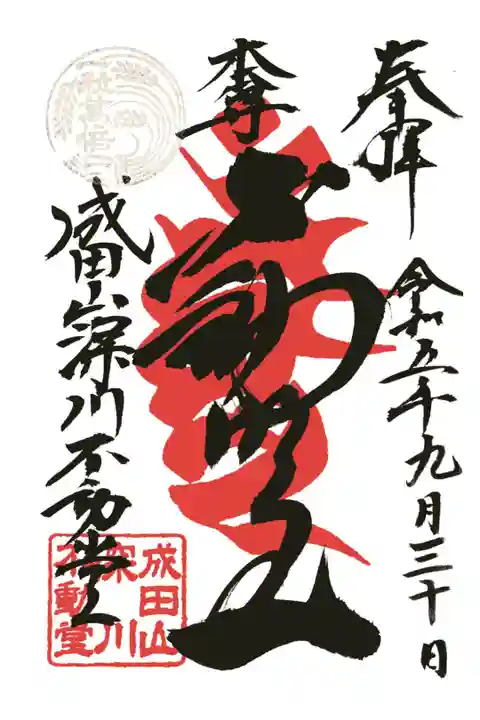 奉拝
令和五年九月三十日
本尊
不動明王
成田山深川不動堂
成田山
深川
不動堂